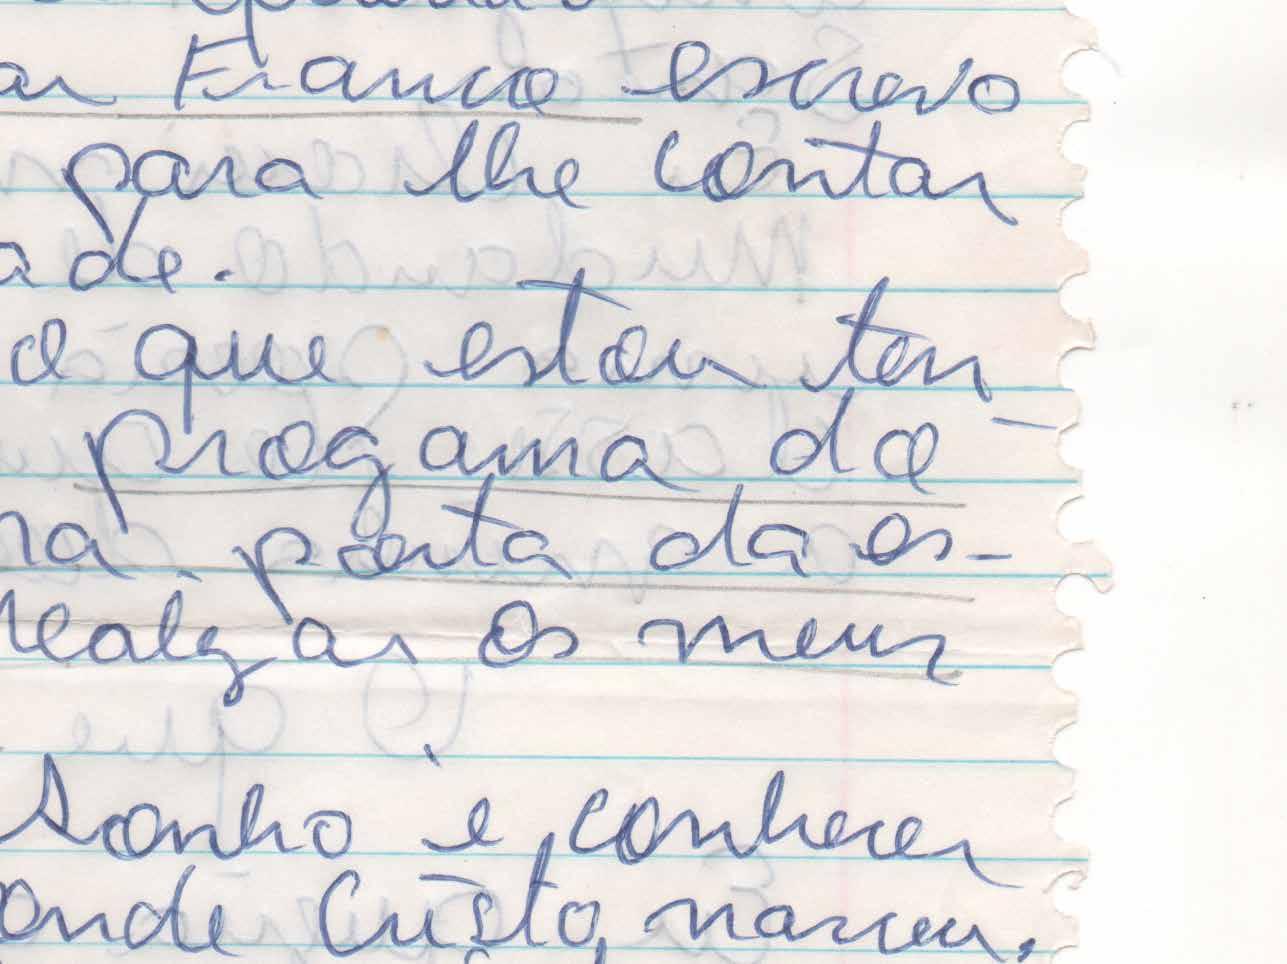 Franco escrevo
para lhe contar
ade.
que estou ten
progama do
na porta da es-
realizar os meus
Sonho é conhecer
onde Cristo nasceu,